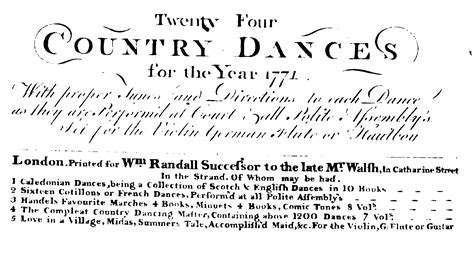 Twenty Four
COUNTRY DANCES
for the Year 1771.
With proper Tunes and Directions to each Dance
as they are Perform'd at Court & all Polite Assembly's
Set for the Violin German Flute or Hautboy
London. Printed for Wm. Randall Successor to the late Mr. Walsh, In Catharine Street
In the Strand. Of Whom may be had.
1 Caledonian Dances, being a Collection of Scotch & English Dances in 10 Books – – –
2 Sixteen Cotillons or French Dances, Perform'd at all Polite Assembly's – – – –
3 Handels Favourite Marches 4 Books, Minuets 4 Books, Comic Tunes 8 Vols. – –
4 The Compleat Country Dancing Master, Containing above 1200 Dances 7 Vols. – –
5 Love in a Village, Midas, Summers Tale, Accomplish'd Maid, &c. For the Violin, G. Flute or Guitar